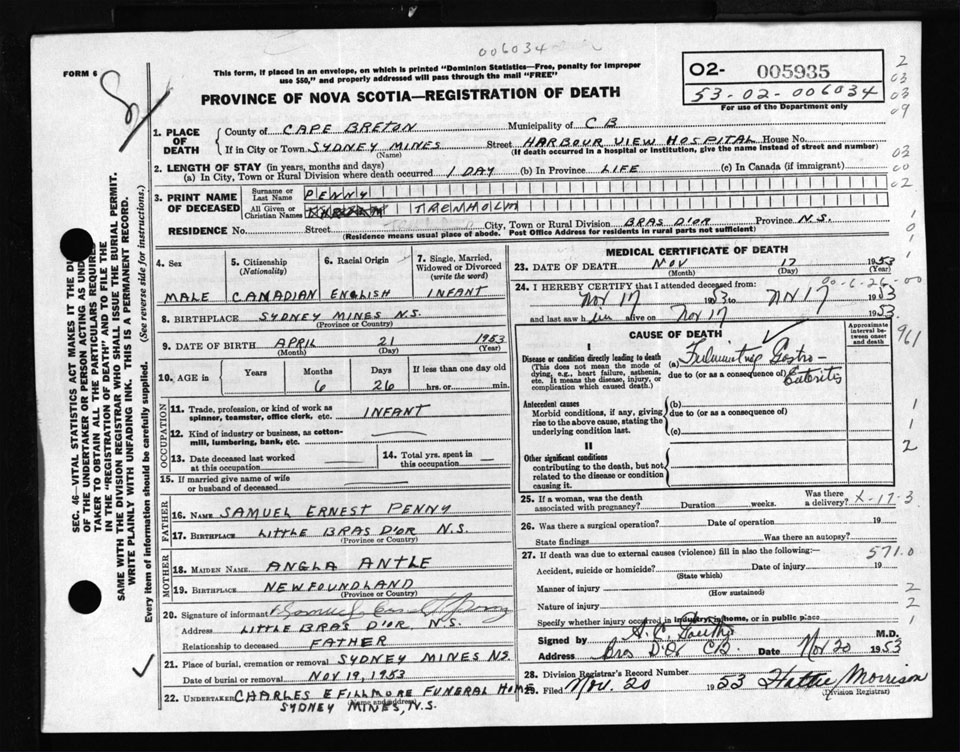 006034
FORM 6
This form, if placed in an envelope, on which is printed "Dominion Statistics—Free, penalty for improper
use $50," and properly addressed will pass through the mail "FREE"
PROVINCE OF NOVA SCOTIA—REGISTRATION OF DEATH
02- 005935
53-02-006034
For use of the Department only
2
03
03
09
03
00
02
1. PLACE OF DEATH
County of CAPE BRETON Municipality of C B
If in City or Town SYDNEY MINES Street HARBOUR VIEW HOSPITAL House No.
(Name) (If death occurred in a hospital or institution, give the name instead of street and number)
2. LENGTH OF STAY (in years, months and days)
(a) In City, Town or Rural Division where death occurred 1 DAY (b) In Province LIFE (c) In Canada (if immigrant)
3. PRINT NAME OF DECEASED
Surname or Last Name PENNY
All Given or Christian Names TRENHOLM
RESIDENCE No. Street City, Town or Rural Division BRAS D'OR Province N.S.
(Residence means usual place of abode. Post Office Address for residents in rural parts not sufficient)
4. Sex
MALE
5. Citizenship (Nationality)
CANADIAN
6. Racial Origin
ENGLISH
7. Single, Married, Widowed or Divorced (write the word)
INFANT
8. BIRTHPLACE SYDNEY MINES N.S.
(Province or Country)
9. DATE OF BIRTH APRIL 21 1953
(Month) (Day) (Year)
10. AGE in Years Months Days If less than one day old
6 26 hrs. or min.
OCCUPATION
11. Trade, profession, or kind of work as spinner, teamster, office clerk, etc. INFANT
12. Kind of industry or business, as cotton-mill, lumbering, bank, etc. —
13. Date deceased last worked at this occupation —
14. Total yrs. spent in this occupation —
15. If married give name of wife or husband of deceased
FATHER
16. NAME SAMUEL ERNEST PENNY
17. BIRTHPLACE LITTLE BRAS D'OR N.S.
(Province or Country)
MOTHER
18. MAIDEN NAME ANGLA ANTLE
19. BIRTHPLACE NEWFOUNDLAND
(Province or Country)
20. Signature of informant Samuel Ernest Penny
Address LITTLE BRAS D'OR, N.S.
Relationship to deceased FATHER
21. Place of burial, cremation or removal SYDNEY MINES N.S.
Date of burial or removal NOV 19, 1953
22. UNDERTAKER CHARLES E FILLMORE FUNERAL HOME
(Name and address)
SYDNEY MINES, N.S.
MEDICAL CERTIFICATE OF DEATH
23. DATE OF DEATH NOV 17 1953
(Month) (Day) (Year)
24. I HEREBY CERTIFY that I attended deceased from: 00-6-26-00
Nov 17 1953 to Nov 17 1953
and last saw him alive on Nov 17 1953.
CAUSE OF DEATH
Approximate interval between onset and death
I
Disease or condition directly leading to death
(This does not mean the mode of dying, e.g., heart failure, asthenia, etc. It means the disease, injury, or complication which caused death.)
(a) Fulminating Gastro-
due to (or as a consequence of) Enteritis
Antecedent causes
Morbid conditions, if any, giving rise to the above cause, stating the underlying condition last.
(b)
due to (or as a consequence of)
(c)
II
Other significant conditions
contributing to the death, but not related to the disease or condition causing it.
25. If a woman, was the death associated with pregnancy? Duration weeks. Was there a delivery? X-17-3
26. Was there a surgical operation? Date of operation 19
State findings Was there an autopsy?
27. If death was due to external causes (violence) fill in also the following:— 571.0
Accident, suicide or homicide? Date of injury 19
(State which)
Manner of injury
(How sustained)
Nature of injury
Specify whether injury occurred in industry, in home, or in public place
Signed by M.D.
Address Bras D'Or C.B. Date Nov 20 1953
28. Division Registrar's Record Number
29. Filed Nov. 20 1953 Hattie Morrison
(Division Registrar)
1
0
1
961
1
1
2
2
2
1
SEC. 46—VITAL STATISTICS ACT MAKES IT THE
OF THE UNDERTAKER OR PERSON ACTING AS
TAKER TO OBTAIN ALL THE PARTICULARS REQUIRED
IN THE "REGISTRATION OF DEATH" AND TO FILE THE
SAME WITH THE DIVISION REGISTRAR WHO SHALL ISSUE THE BURIAL PERMIT.
WRITE PLAINLY WITH UNFADING INK. THIS IS A PERMANENT RECORD.
Every item of information should be carefully supplied. (See reverse side for instructions.)